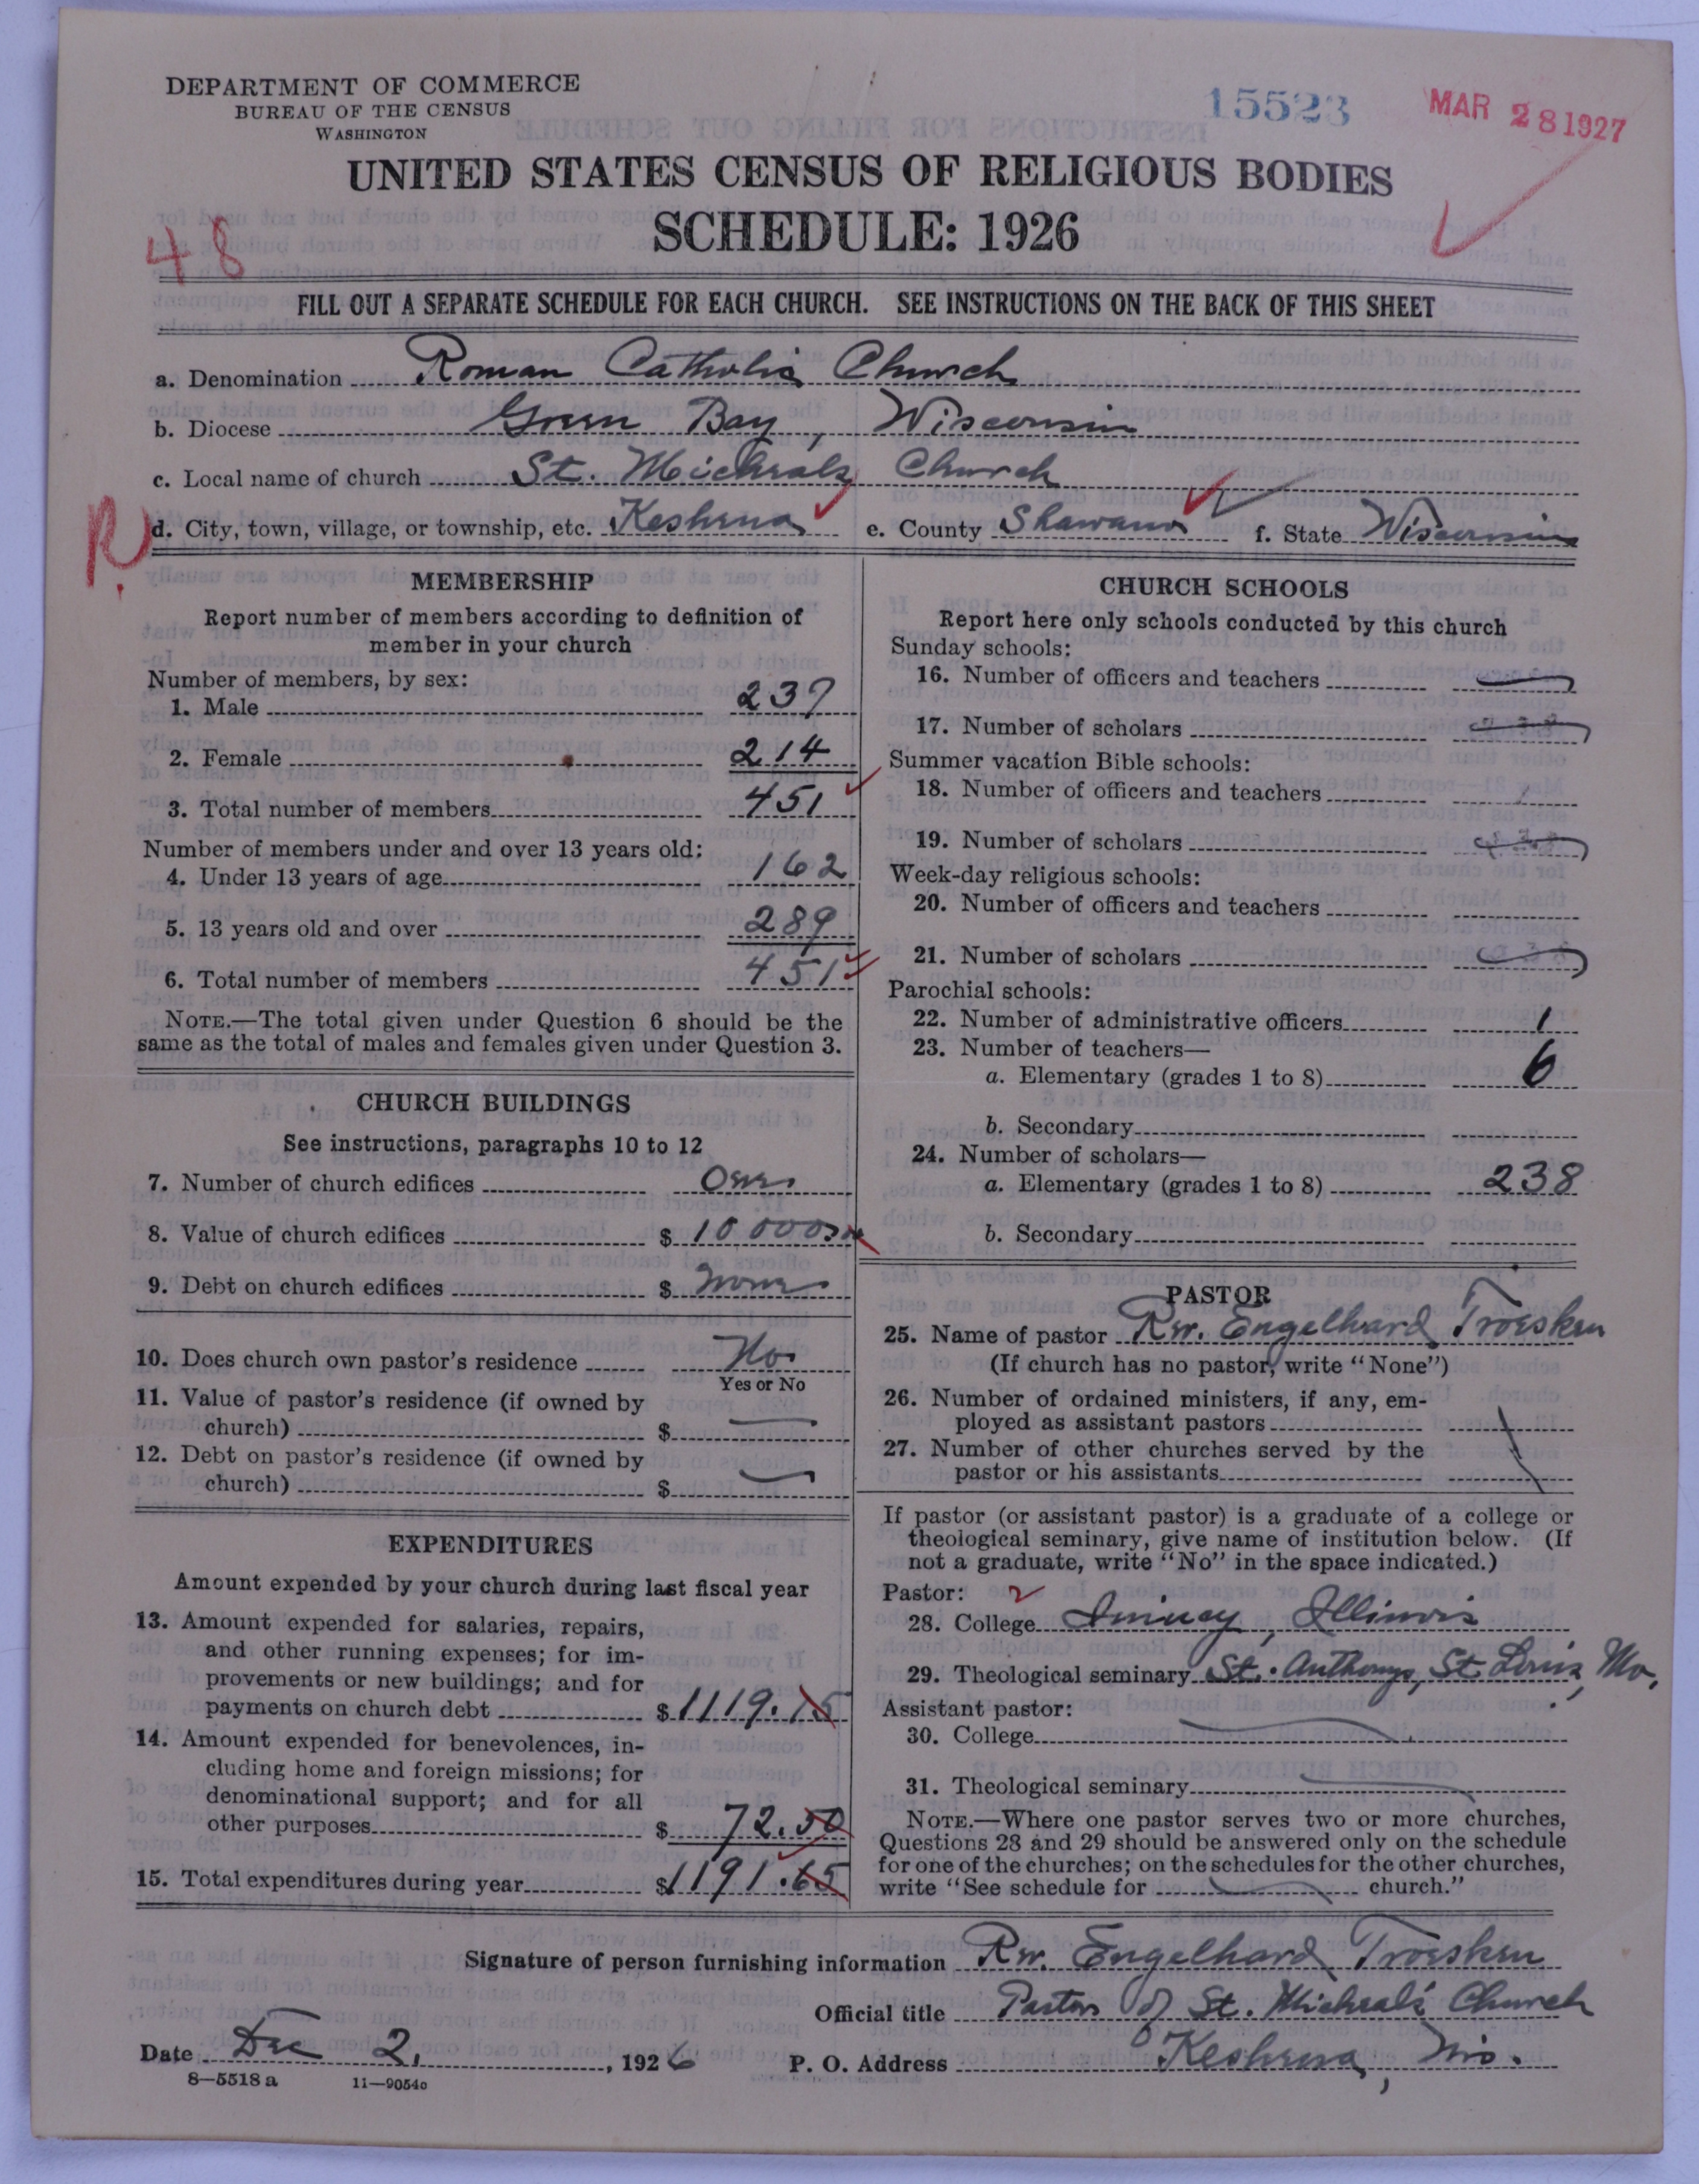 DEPARTMENT OF COMMERCE
BUREAU OF THE CENSUS
WASHINGTON
15523
MAR 28 1927
UNITED STATES CENSUS OF RELIGIOUS BODIES
SCHEDULE: 1926
48
FILL OUT A SEPARATE SCHEDULE FOR EACH CHURCH. SEE INSTRUCTIONS ON THE BACK OF THIS SHEET
a. Denomination Roman Catholic Church
b. Diocese Green Bay, Wisconsin
c. Local name of church St. Michaels Church
R.
d. City, town, village, or township, etc. Keshena e. County Shawano f. State Wisconsin
MEMBERSHIP
Report number of members according to definition of
member in your church
Number of members, by sex:
1. Male 237
2. Female 214
3. Total number of members 451
Number of members under and over 13 years old:
4. Under 13 years of age 162
5. 13 years old and over 289
6. Total number of members 451
NOTE.—The total given under Question 6 should be the
same as the total of males and females given under Question 3.
CHURCH BUILDINGS
See instructions, paragraphs 10 to 12
7. Number of church edifices One
8. Value of church edifices $ 10000
9. Debt on church edifices $ none
10. Does church own pastor's residence No
Yes or No
11. Value of pastor's residence (if owned by
church) $
12. Debt on pastor's residence (if owned by
church) $
EXPENDITURES
Amount expended by your church during last fiscal year
13. Amount expended for salaries, repairs,
and other running expenses; for im-
provements or new buildings; and for
payments on church debt $ 1119.15
14. Amount expended for benevolences, in-
cluding home and foreign missions; for
denominational support; and for all
other purposes $ 72.50
15. Total expenditures during year $ 1191.65
CHURCH SCHOOLS
Report here only schools conducted by this church
Sunday schools:
16. Number of officers and teachers
17. Number of scholars
Summer vacation Bible schools:
18. Number of officers and teachers
19. Number of scholars
Week-day religious schools:
20. Number of officers and teachers
21. Number of scholars
Parochial schools:
22. Number of administrative officers 1
23. Number of teachers—
a. Elementary (grades 1 to 8) 6
b. Secondary
24. Number of scholars—
a. Elementary (grades 1 to 8) 238
b. Secondary
PASTOR
25. Name of pastor Rev. Engelhard Troesken
(If church has no pastor, write "None")
26. Number of ordained ministers, if any, em-
ployed as assistant pastors
27. Number of other churches served by the
pastor or his assistants
If pastor (or assistant pastor) is a graduate of a college or
theological seminary, give name of institution below. (If
not a graduate, write "No" in the space indicated.)
Pastor: 2
28. College Quincy, Illinois
29. Theological seminary St. Anthonys, St Louis, Mo.
Assistant pastor:
30. College
31. Theological seminary
NOTE.—Where one pastor serves two or more churches,
Questions 28 and 29 should be answered only on the schedule
for one of the churches; on the schedules for the other churches,
write "See schedule for church."
Signature of person furnishing information Rev. Engelhard Troesken
Official title Pastor of St. Micheals Church
Date Dec 2, 1926 P. O. Address Keshena, Wis.
8—5518 a 11—9054c